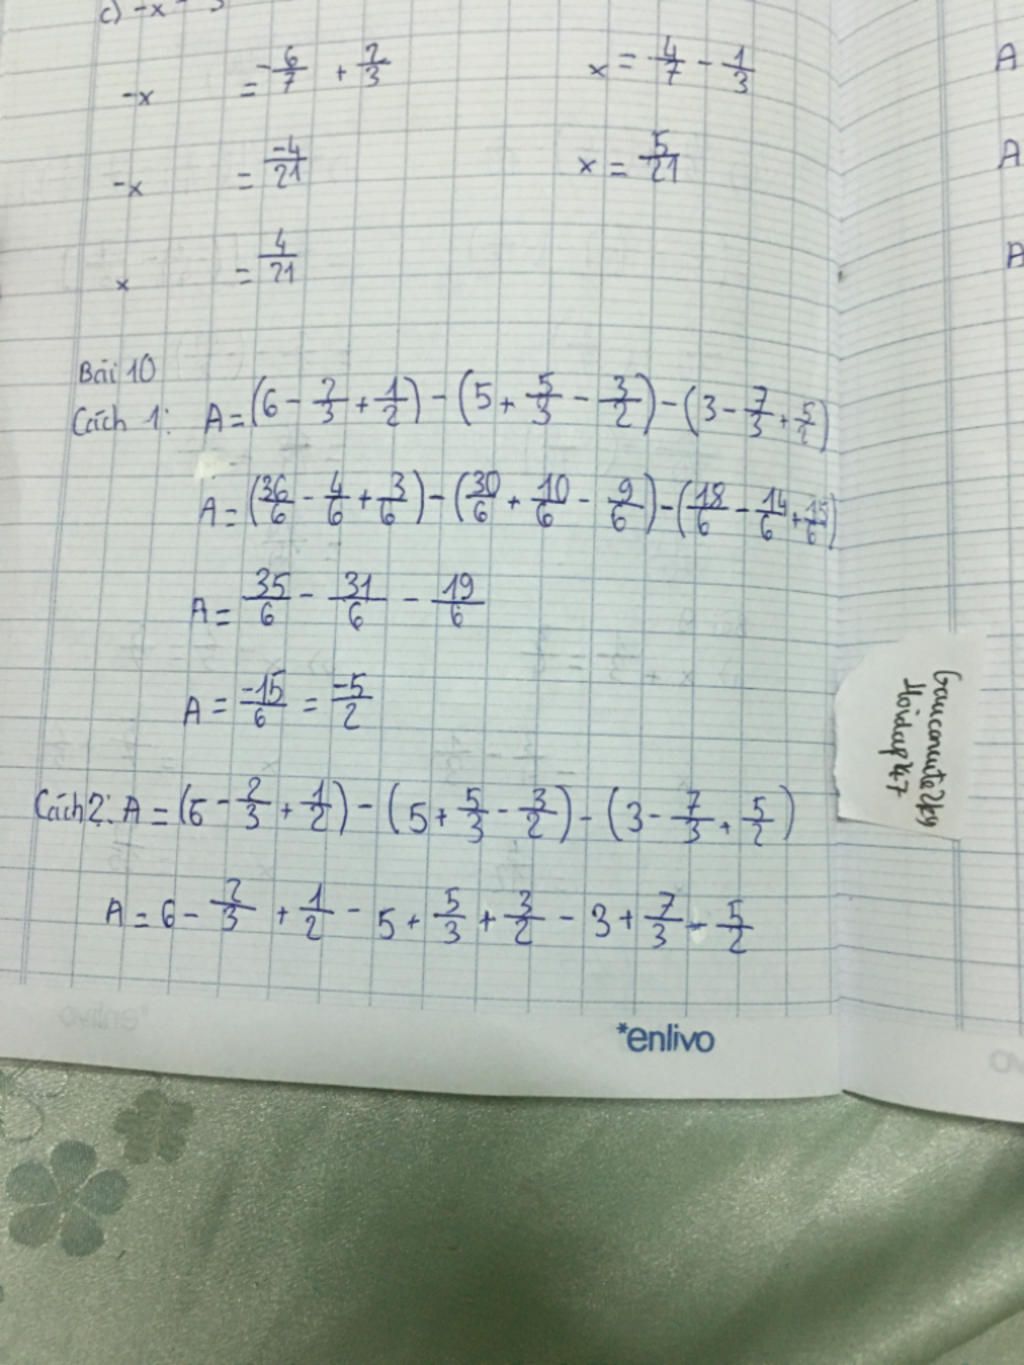 c) -x -
-x = -6/7 + 2/3
x = 4/7 - 1/3
-x = -4/21
x = 5/21
x = 4/21
A
A
A
Bài 10
Cách 1: A = (6 - 2/3 + 1/2) - (5 + 5/3 - 3/2) - (3 - 7/3 + 5/2)
A = (36/6 - 4/6 + 3/6) - (30/6 + 10/6 - 9/6) - (18/6 - 14/6 + 15/6)
A = 35/6 - 31/6 - 19/6
A = -15/6 = -5/2
Cách 2: A = (6 - 2/3 + 1/2) - (5 + 5/3 - 3/2) - (3 - 7/3 + 5/2)
A = 6 - 2/3 + 1/2 - 5 + 5/3 + 3/2 - 3 + 7/3 - 5/2
Gauconcute2k9
Hoidap247
*enlivo